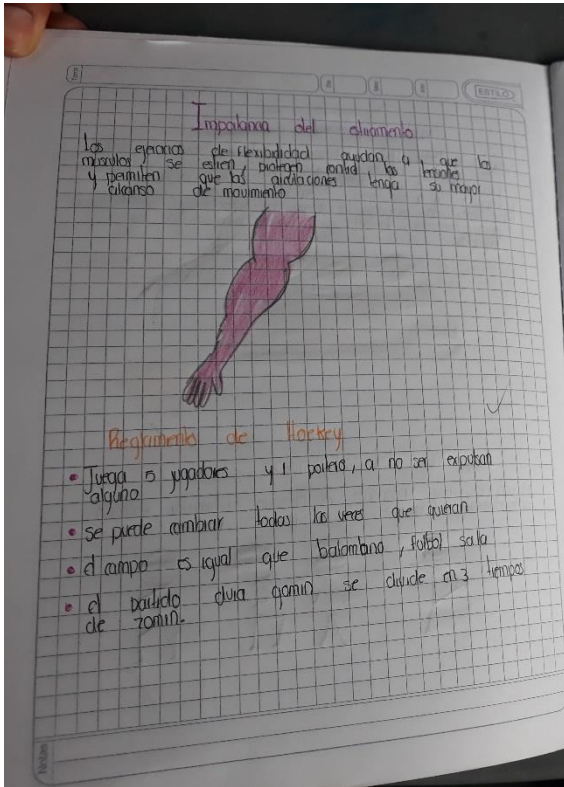 ESTILO
Impotancia del estiramento
Los ejercicios de flexibilidad ayudan a que los
músculos, se estien, protegen contid los
y permiten que las aiculaciones tenga su mayor
alcanso de movimiento
Reglamento de Hockey
• Juega 5 jugadores y 1 portero, a no ser expulsan
alguno
• se puede cambiar todas las veces que quieran
• el campo es igual que balombano, futbol sala
• el partido dura 90min se divide en 3 tiempos
de 20min.
Notas